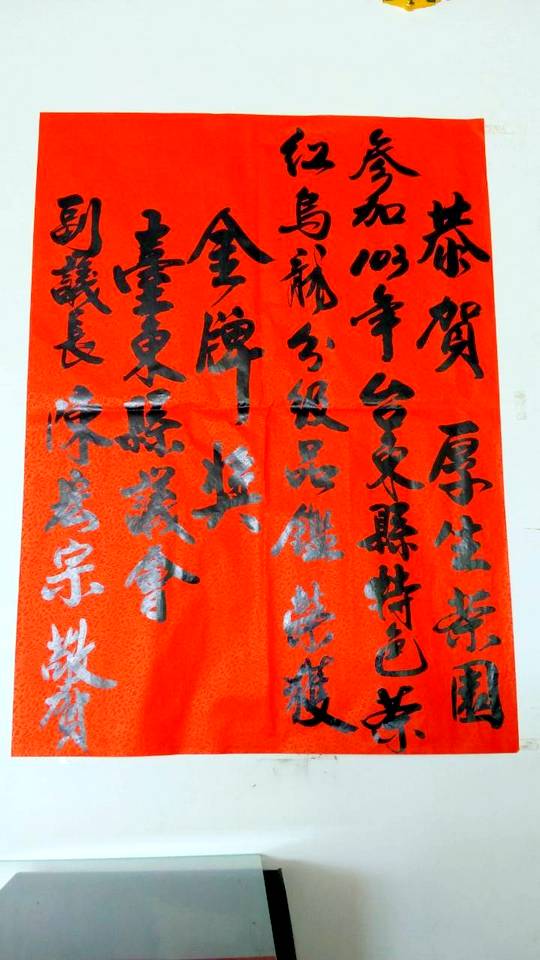 恭賀 厚生茶園
參加103年台東縣特色茶
紅烏龍分級品鑑榮獲
金牌獎
臺東縣議會
副議長 陳宏宗敬賀